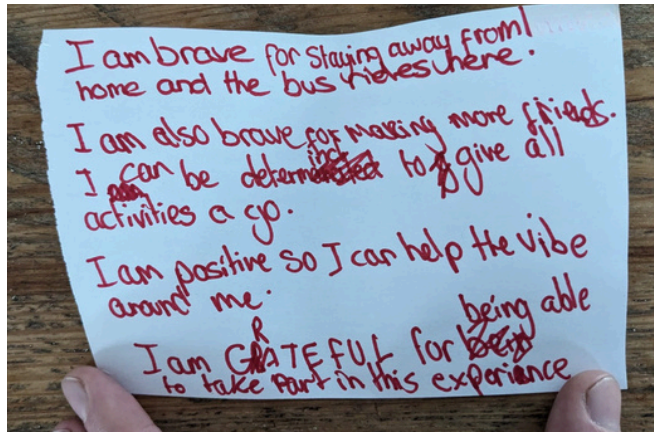 I am brave for staying away from
home and the bus rides here.
I am also brave for making more friends.
I can be determined to give all
activities a go.
I am positive so I can help the vibe
around me.
I am GRATEFUL for being able
to take part in this experiance